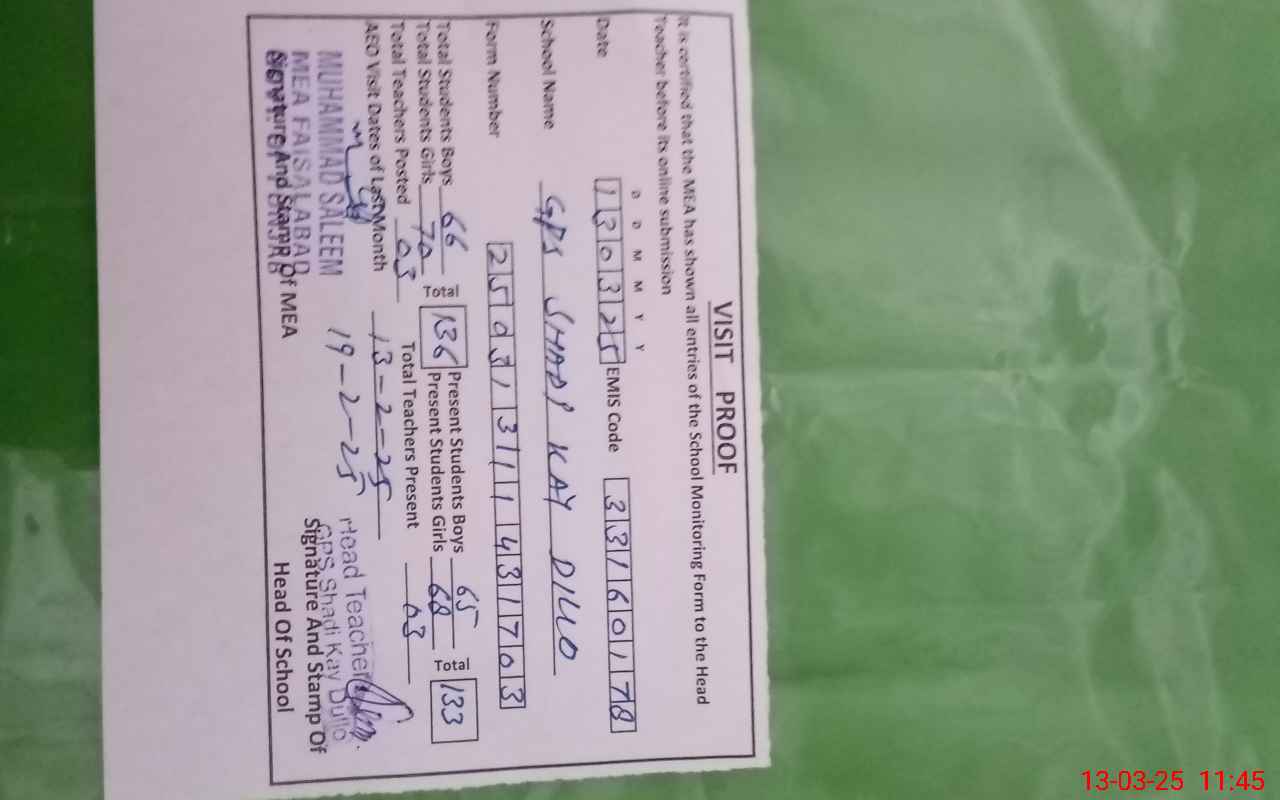 VISIT PROOF
It is certified that the MEA has shown all entries of the School Monitoring Form to the Head
Teacher before its online submission
D D M M Y Y
Date 130325 EMIS Code 33160178
School Name GPS SHADI KAY DILLO
Form Number 250313111431703
Total Students Boys 66 Total 136 Present Students Boys 65 Total 133
Total Students Girls 70 Present Students Girls 68
Total Teachers Posted 03 Total Teachers Present 03
AEO Visit Dates of Last Month 13-2-25
19-2-25
MUHAMMAD SALEEM
MEA FAISALABAD
Signature And Stamp Of MEA
Head Teacher
GPS Shadi Kay Dullo
Signature And Stamp Of
Head Of School
13-03-25 11:45